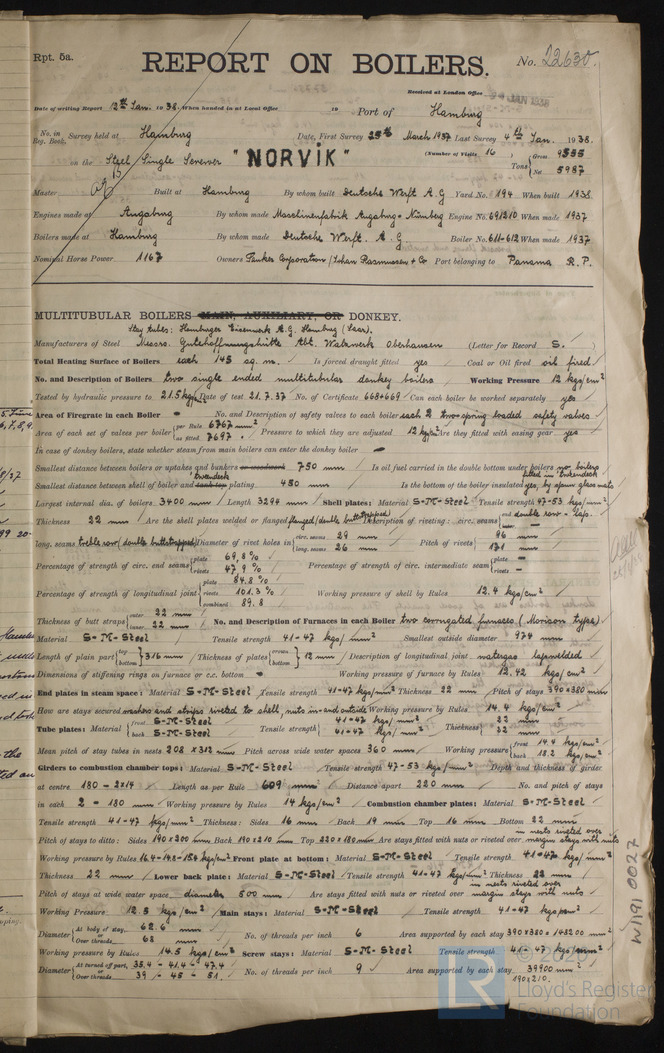 Rpt. 5a.
REPORT ON BOILERS.
No. 22630.
Received at London Office
Date of writing Report 12th Jan. 1938. When handed in at Local Office 19 Port of Hamburg
No. in Reg. Book. Survey held at Hamburg Date, First Survey 25th March 1937 Last Survey 4th Jan. 1938.
on the Steel Single Screwer "NORVIK" (Number of Visits 16) Tons Gross 9555 Net 5987
Master Built at Hamburg By whom built Deutsche Werft A.G Yard No. 194 When built 1938
Engines made at Augsburg By whom made Maschinenfabrik Augsburg-Nürnberg Engine No. 691210 When made 1937
Boilers made at Hamburg By whom made Deutsche Werft. A.G Boiler No. 611-612 When made 1937
Nominal Horse Power 1167 Owners Tanker Corporation /Johan Rasmussen & Co Port belonging to Panama R.P.
MULTITUBULAR BOILERS MAIN, AUXILIARY, OR DONKEY.
Stay tubes: Homburger Eisenwerk A.G. Homburg (Saar).
Manufacturers of Steel Messrs. Gutehoffnungshütte Abt. Walzwerk Oberhausen (Letter for Record S.)
Total Heating Surface of Boilers each 145 sq. m. Is forced draught fitted yes Coal or Oil fired oil fired
No. and Description of Boilers two single ended multitubular donkey boilers Working Pressure 12 kgs/cm²
Tested by hydraulic pressure to 21.5 kg/cm² Date of test 21.7.37 No. of Certificate 668+669 Can each boiler be worked separately yes
Area of Firegrate in each Boiler - No. and Description of safety valves to each boiler each 2 two spring loaded safety valves
Area of each set of valves per boiler per Rule 6767 mm² as fitted 7697 Pressure to which they are adjusted 12 kg/cm² Are they fitted with easing gear yes
In case of donkey boilers, state whether steam from main boilers can enter the donkey boiler -
Smallest distance between boilers or uptakes and bunkers or woodwork 750 mm Is oil fuel carried in the double bottom under boilers no boilers fitted in tweendeck
Smallest distance between shell of boiler and tweendeck plating 450 mm Is the bottom of the boiler insulated yes, by spun glass mats
Largest internal dia. of boilers 3400 mm Length 3294 mm Shell plates: Material S-M-Steel Tensile strength 47-53 kgs/mm²
Thickness 22 mm Are the shell plates welded or flanged flanged (double buttstrapped) Description of riveting: circ. seams end double row - lap. inter -
long. seams treble row (double buttstrapped) Diameter of rivet holes in circ. seams 29 mm long. seams 26 mm Pitch of rivets 96 mm 171 mm
Percentage of strength of circ. end seams plate 69,8 % rivets 47,9 % Percentage of strength of circ. intermediate seam plate - rivets -
Percentage of strength of longitudinal joint plate 84.8 % rivets 101.3 % combined 89.8 Working pressure of shell by Rules 12.4 kgs/cm²
Thickness of butt straps outer 22 mm inner 22 mm No. and Description of Furnaces in each Boiler two corrugated furnaces (Morison type)
Material S-M-Steel Tensile strength 41-47 kgs/mm² Smallest outside diameter 974 mm
Length of plain part top bottom 316 mm Thickness of plates crown bottom 12 mm Description of longitudinal joint watergas lapwelded
Dimensions of stiffening rings on furnace or c.c. bottom - Working pressure of furnace by Rules 12.42 kg/cm²
End plates in steam space: Material S-M-Steel Tensile strength 41-47 kgs/mm² Thickness 22 mm Pitch of stays 390x380 mm
How are stays secured washers and stripes riveted to shell, nuts in-and outside Working pressure by Rules 14.4 kgs/cm²
Tube plates: Material front S-M-Steel back S-M-Steel Tensile strength 41-47 kgs/mm² 41-47 kgs/mm² Thickness 22 mm 22 mm
Mean pitch of stay tubes in nests 208 x 312 mm Pitch across wide water spaces 360 mm Working pressure front 14.4 kgs/cm² back 18.2 kgs/cm²
Girders to combustion chamber tops: Material S-M-Steel Tensile strength 47-53 kgs/mm² Depth and thickness of girder
at centre 180 - 2x14 Length as per Rule 609 mm Distance apart 220 mm No. and pitch of stays
in each 2 = 180 mm Working pressure by Rules 14 kgs/cm² Combustion chamber plates: Material S-M-Steel
Tensile strength 41-47 kgs/mm² Thickness: Sides 16 mm Back 19 mm Top 16 mm Bottom 22 mm
Pitch of stays to ditto: Sides 190x200 mm Back 190x210 mm Top 220x180 mm Are stays fitted with nuts or riveted over in nests riveted over margin stays with nuts
Working pressure by Rules 16.4-14.2-15.6 kg/cm² Front plate at bottom: Material S-M-Steel Tensile strength 41-47 kg/mm²
Thickness 22 mm Lower back plate: Material S-M-Steel Tensile strength 41-47 kgs/mm² Thickness 22 mm
Pitch of stays at wide water space diameter 500 mm Are stays fitted with nuts or riveted over in nests riveted over margin stays with nuts
Working Pressure 12.5 kgs/cm² Main stays: Material S-M-Steel Tensile strength 41-47 kgs/mm²
Diameter At body of stay, 62.6 mm Over threads 68 mm No. of threads per inch 6 Area supported by each stay 390x380 = 148200 mm²
Working pressure by Rules 14.5 kgs/cm² Screw stays: Material S-M-Steel Tensile strength 41-47 kgs/mm²
Diameter At turned off part, 35.4 - 41.4 - 47.4 Over threads 39 - 45 - 51. No. of threads per inch 9 Area supported by each stay 39900 mm²
190x210.
W1191 0027
© 2020
LR
Lloyd's Register
Foundation